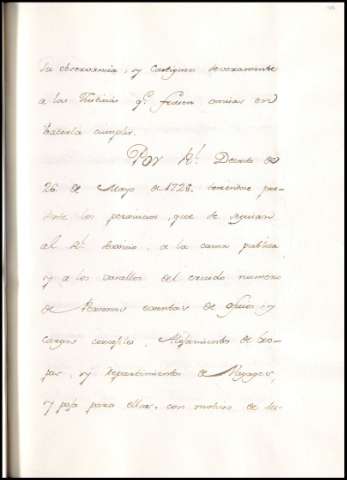 su observancia, y castiguen severamente
a las Justicias q.e fueren omisas en
hacerla cumplir.
Por R.l Decreto de
26 de Mayo de 1728. teniendose pre-
sente los perjuicios, que se seguian
al R.l Erario, a la causa publica
y a los vasallos del crecido numero
de Personas exentas de oficios y
cargas concejiles, Alojamiento de tro-
pas, y repartimientos de Vagages,
y paja para ellas, con motivo de